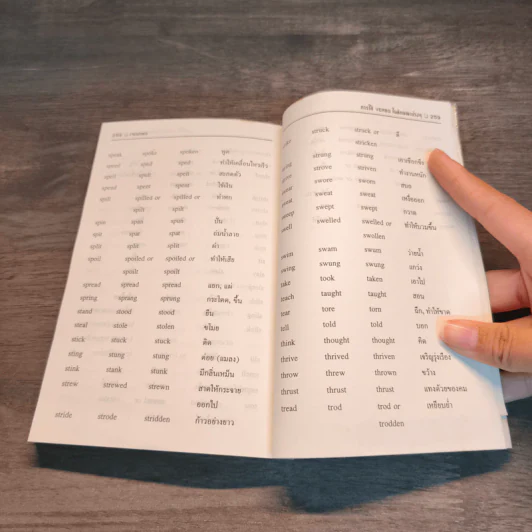 speak spoke spoken พูด
speed sped sped ทำให้เคลื่อนไหวเร็ว
spell spelt spelt สะกดตัว
spend spent spent ใช้เงิน
spill spilled or spilled or ทำหก
spilt spilt
spin spun spun ปั่น
spit spat spat ถ่มน้ำลาย
split split split ผ่า
spoil spoiled or spoiled or ทำให้เสีย
spoilt spoilt
spread spread spread แยก, แผ่
spring sprang sprung กระโดด, ขึ้น
stand stood stood ยืน
steal stole stolen ขโมย
stick stuck stuck ติด
sting stung stung ต่อย (แมลง)
stink stank stunk มีกลิ่นเหม็น
strew strewed strewn สาดให้กระจาย
ออกไป
stride strode stridden ก้าวอย่างยาว
struck struck or ตี
stricken
strung strung
strove striven ทำงานหนัก
swore sworn สบถ
sweat sweat เหงื่อออก
sweep swept swept กวาด
swell swelled swelled or ทำให้บวมขึ้น
swollen
swim swam swum ว่ายน้ำ
swing swung swung แกว่ง
take took taken เอาไป
teach taught taught สอน
tear tore torn ฉีก, ทำให้ขาด
tell told told บอก
think thought thought คิด
thrive thrived thriven เจริญรุ่งเรือง
throw threw thrown ขว้าง
thrust thrust thrust แทงด้วยของคม
tread trod trod or เหยียบย่ำ
trodden